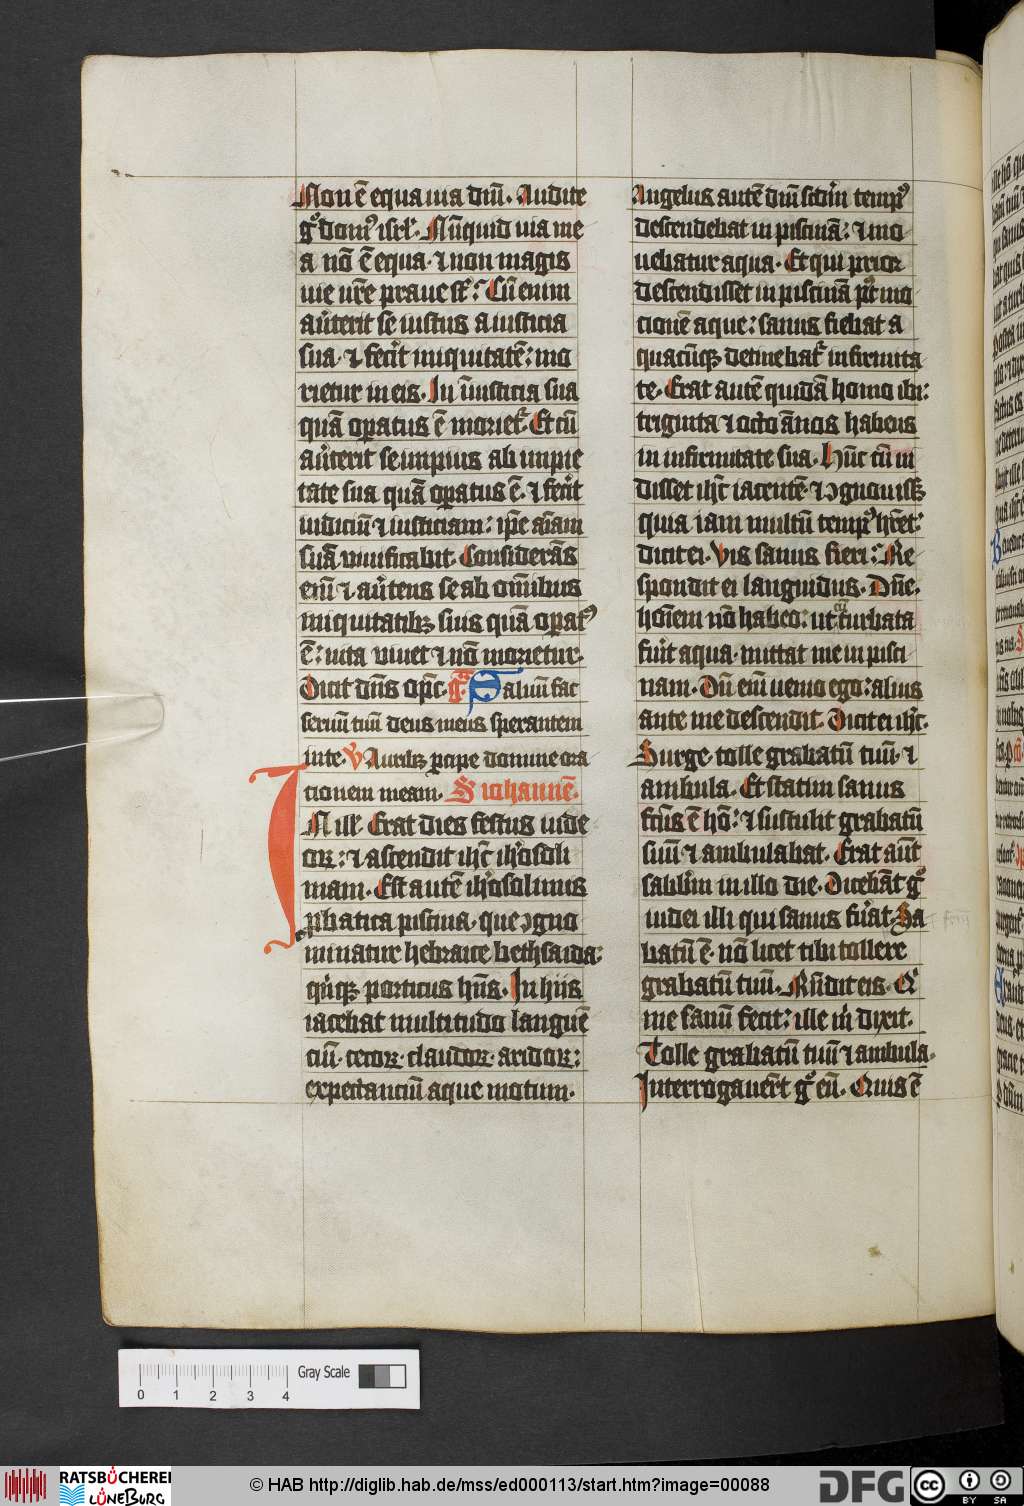 Non ē equa uia dm̄. Audite
gͦ domꝰ isrl'. Nūquid uia me
a nō ē equa. ⁊ non magis
uie vr̄e praue st̄: Cū enim
au'terit se iustus a iusticia
sua. ⁊ fec'it iniquitatē: mo
rietur in eis. In iīusticia sua
quā op̄atus ē moriet᷑. Et cū
au'terit se impius ab impie
tate sua quā op̄atus ē. ⁊ fec'it
iudiciū ⁊ iusticiam: ip̄e aīam
suā uiuificabit. Considerās
eni᷑ ⁊ au'tens se ab om̄ibus
iniquitatibꝫ suis quā op̄atꝰ
ē: uita viuet ⁊ nō morietur.
Dicit dn̄s op̄c. Saluū fac
seruū tuū deus meus sperantem
in te. V Auribꝫ ꝑcipe domine ora
tionem meam. S iohannē.
IN ill'. Erat dies festus iude
oꝝ: ⁊ ascendit ih̄c ih'osoli
mam. Est autē ih'osolimis
ꝓbatica piscina. que ꝯgno
minatur hebraice bethsaida:
qu'qꝫ porticus hn̄s. In hiis
iacebat multitudo languē
ciū. cecoꝝ. claudoꝝ. aridoꝝ:
expectanciū aque motum.
Angelus autē dm̄ scd̄m tempꝰ
descendebat in piscinā: ⁊ mo
uebatur aqua. Et qui prior
descendisset in piscinā pꝰt mo
cionē aque: sanus fiebat a
quacūqꝫ detinebat᷑ infirmita
te. Erat autē quidā homo ibi:
triginta ⁊ octo ānos habens
in infirmitate sua. Hūc cū ui
disset ih̄c iacentē. ⁊ ꝯgnouissꝫ
quia iam multū tempꝰ h̄et:
dicit ei. Vis sanus fieri: Re
spondit ei languidus. Dn̄e.
hoīem nō habeo: ut cū turbata
fu'it aqua. mittat me in pisci
nam. Dū eni᷑ uenio ego: alius
ante me descendit. Dicit ei ih̄c.
Surge. tolle grabatū tuū. ⁊
ambula. Et statim sanus
fc̄us ē hō: ⁊ sustulit grabatū
suū ⁊ ambulabat. Erat aūt
sabb'm in illo die. Dicebāt gͦ
iudei illi qui sanus fu'at. Sa
batū ē. nō licet tibi tollere
grabatū tuū. Rn̄dit eis. Qͥ
me sanū fecit: ille m̄ dixit.
Tolle grabatū tuū ⁊ ambula.
Interrogauer̄t gͦ eū. Quis ē
0 1 2 3 4 Gray Scale
RATSBÜCHEREI LÜNEBURG
© HAB http://diglib.hab.de/mss/ed000113/start.htm?image=00088
DFG
cc BY SA